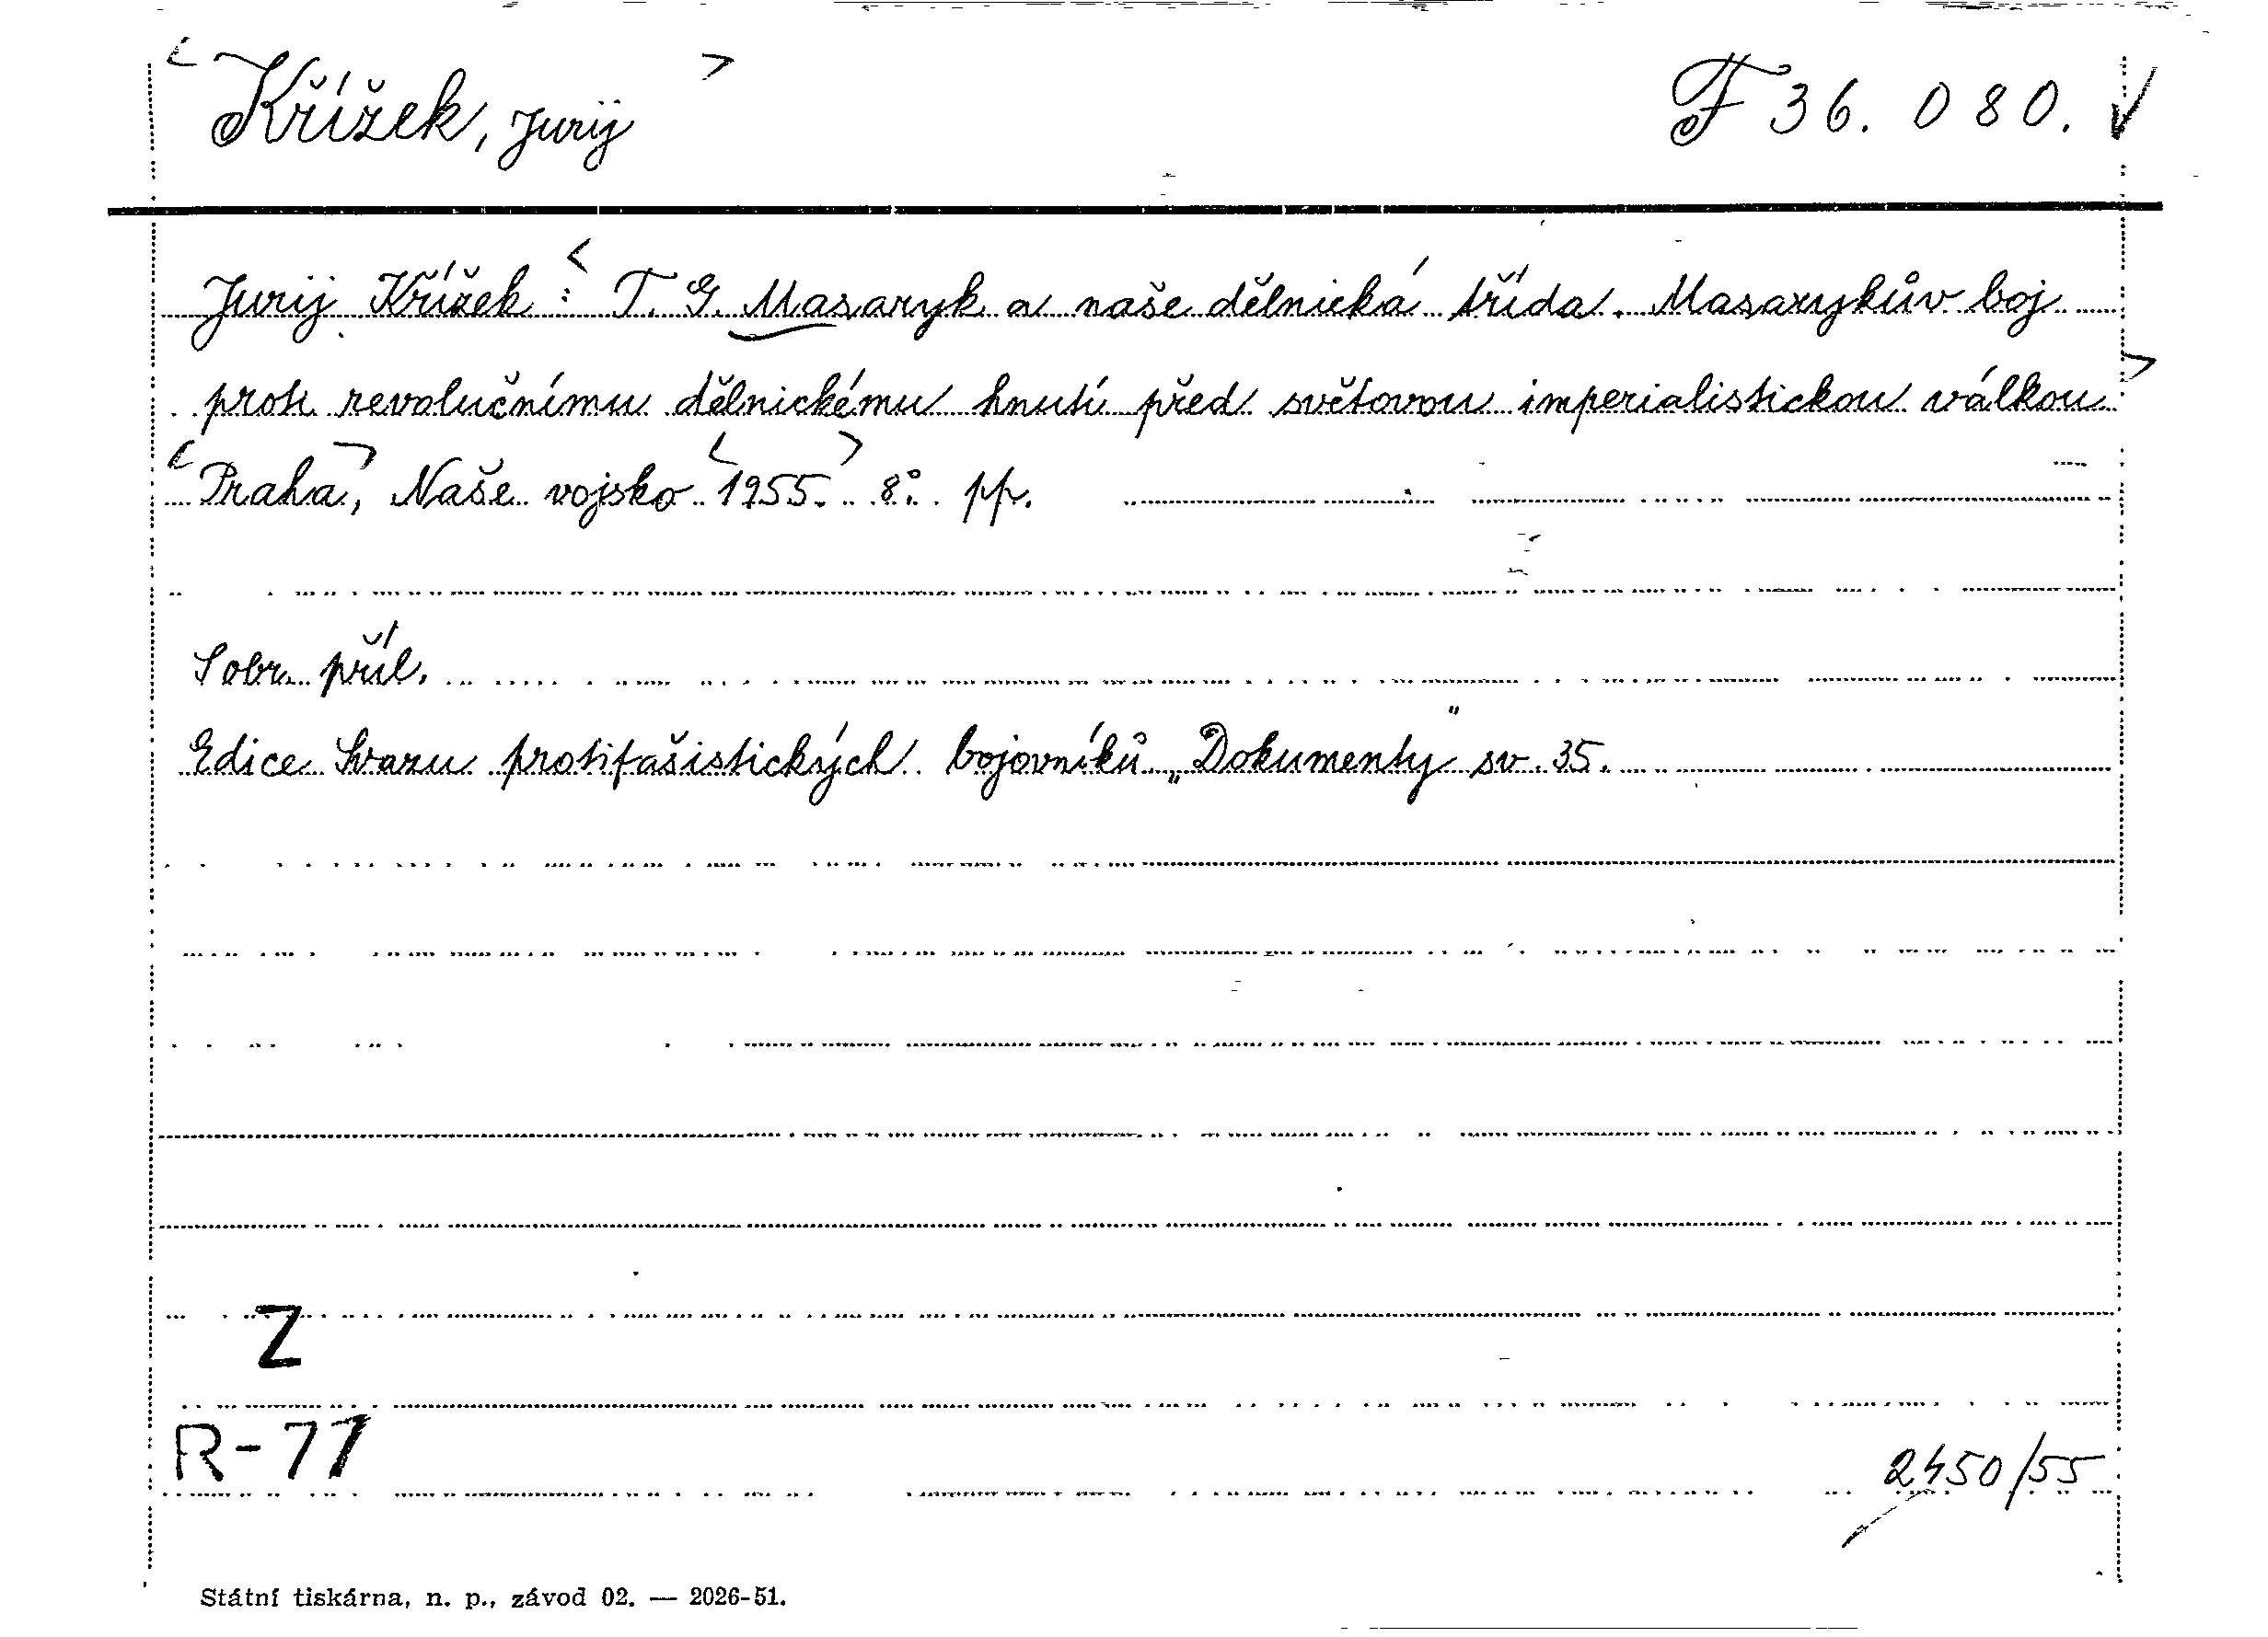 < Křížek, Jurij > F 36.080. √
Jurij Křížek : < T. G. Masaryk a naše dělnická třída. Masarykův boj
proti revolučnímu dělnickému hnutí před světovou imperialistickou válkou >
< Praha >, Naše vojsko < 1955. > 8°. pp.
S obr. příl.
Edice Svazu protifašistických bojovníků „Dokumenty" sv. 35.
Z
R-77
2450/55
Státní tiskárna, n. p., závod 02. — 2026-51.